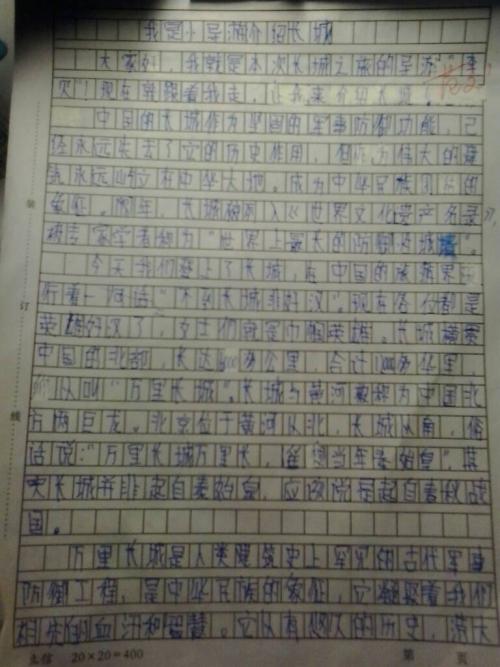 我是小导游介绍长城
大家好，我就是本次长城之旅的导游"李
"！现在就跟着我走，让我来介绍长城。
中国的长城作为坚固的军事防御功能，已
经永远失去了它的历史作用，但作为伟大的建
筑永远屹立在中华大地。成为中华民族的
象征。年，长城被列入《世界文化遗产名录》，
被专家学者称为"世界上最长的防御城墙"。
今天我们登上了长城，在中国的旅游界
行着一句话"不到长城非好汉"。现在各位都是
英雄好汉了，女士们就是巾帼英雄。长城横贯
中国的北部，长达多公里，合计多华里，
所以叫"万里长城"。长城与黄河被称为中国北
方两巨龙。北京位于黄河以北，长城从角，俗
话说："万里长城万里长，当年秦始皇"，其
实长城并非起自秦始皇，应该说是起自春秋战
国。
万里长城是人类建筑史上罕见的古代军事
防御工程，是中华民族的象征，它凝聚着我们
祖先的血汗和智慧。它以有悠久的历史，浩大
立信 20×20=400 第 页
装
订
线